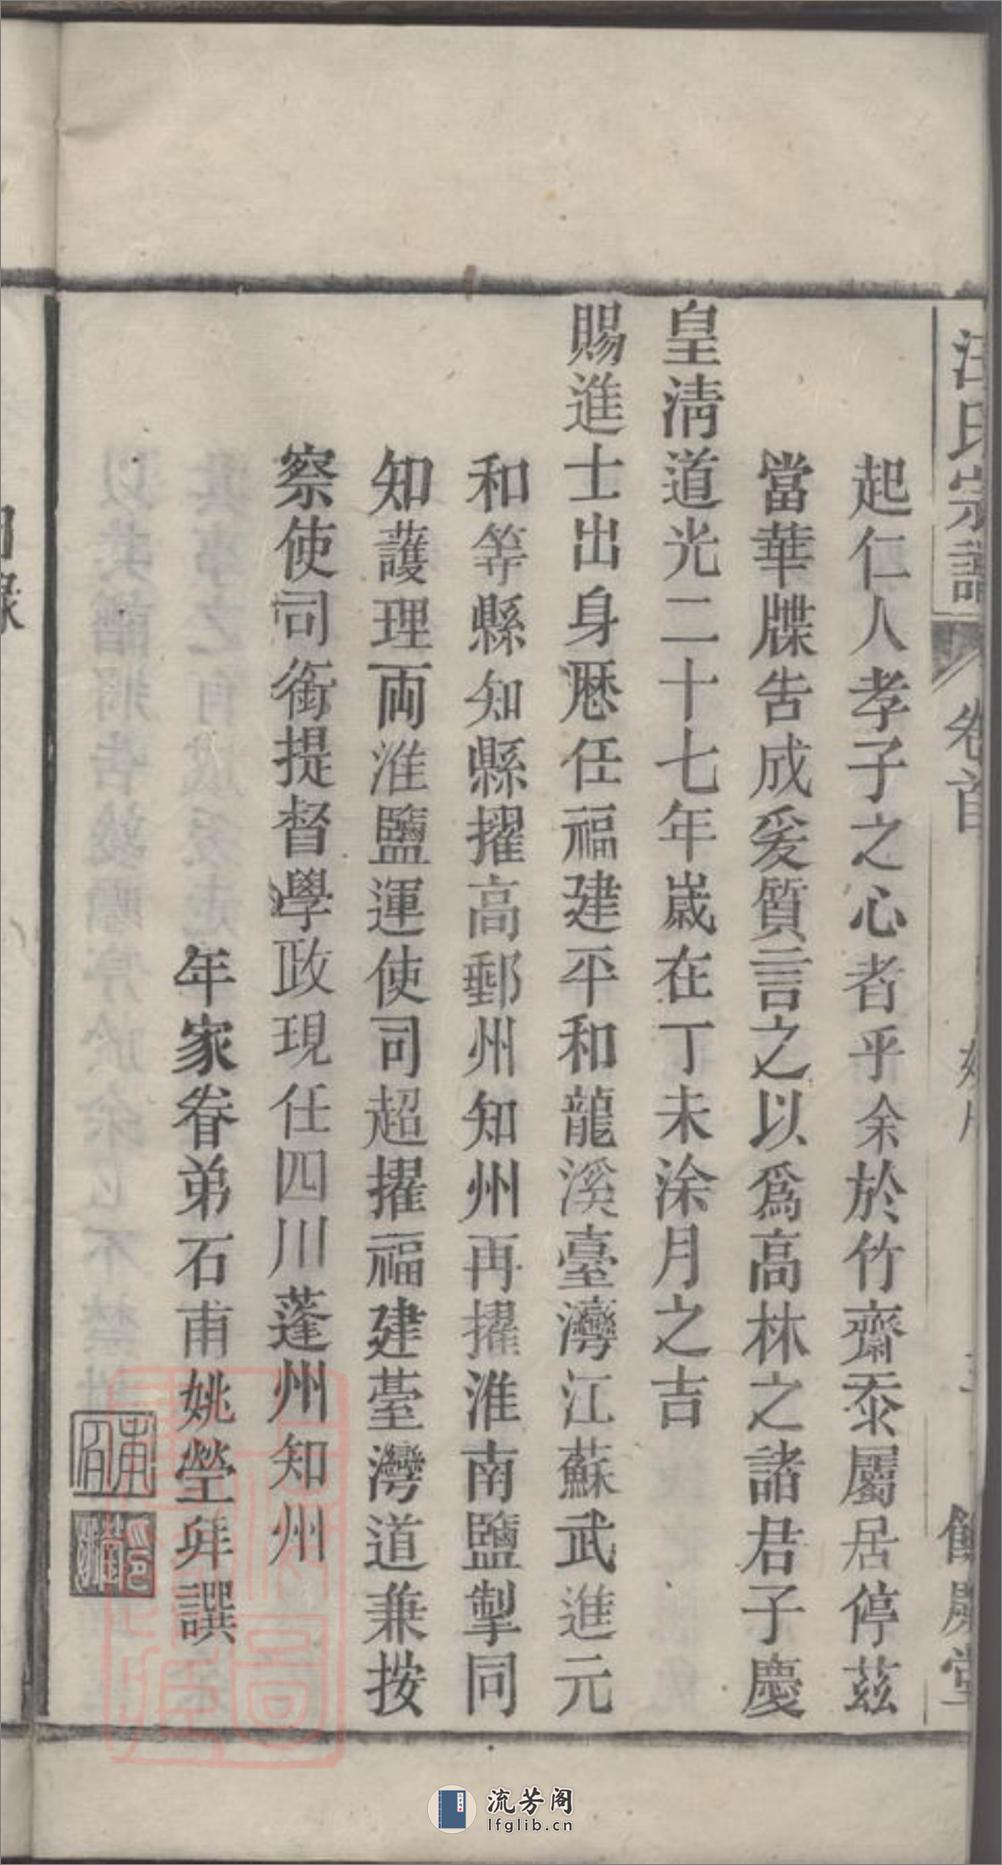 汪氏宗譜
卷首
餘慶堂
起仁人孝子之心者乎余於竹齋忝屬居停茲
當華牒告成爰質言之以爲高林之諸君子慶
皇淸道光二十七年歲在丁未涂月之吉
賜進士出身歷任福建平和龍溪臺灣江蘇武進元
和等縣知縣擢高郵州知州再擢淮南鹽掣同
知護理兩淮鹽運使司超擢福建臺灣道兼按
察使司銜提督學政現任四川蓬州知州
年家眷弟石甫姚瑩拜譔
目錄
流芳阁
lfglib.cn